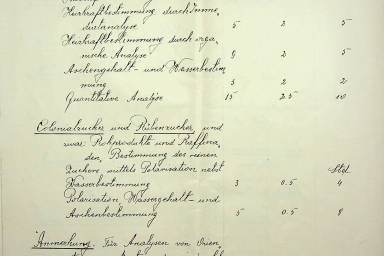 Heizkraftbestimmung durch Imme-
diatanalyse 5 2 5
Heizkraftbestimmung durch orga-
nische Analyse 8 2 5
Aschengehalt- und Wasserbestim-
mung 3 2 2
Quantitative Analyse 15 25 10
Colonialzucker und Rübenzucker, und
zwar: Rohprodukte und Raffina-
den, Bestimmung des reinen
Zuckers mittels Polarisation nebst Std.
Wasserbestimmung 3 0.5 4
Polarisation Wassergehalt- und
Aschenbestimmung 5 0.5 8
Anmerkung. Für Analysen von